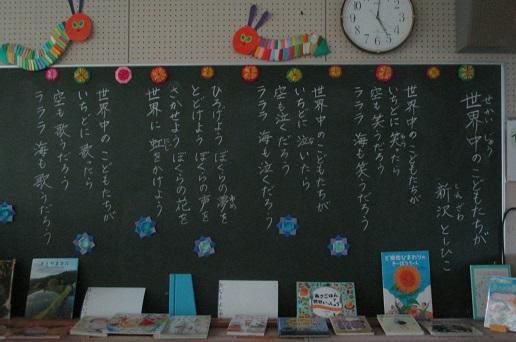 世界中のこどもたちが
せかいじゅう
新沢としひこ
しんざわ
世界中のこどもたちが
いちどに笑ったら
空も笑うだろう
ラララ 海も笑うだろう
世界中のこどもたちが
いちどに泣いたら
空も泣くだろう
ラララ 海も泣くだろう
ひろげよう ぼくらの夢を
とどけよう ぼくらの声を
さかせよう ぼくらの花を
世界に 虹をかけよう
世界中のこどもたちが
いちどに歌ったら
空も歌うだろう
ラララ 海も歌うだろう